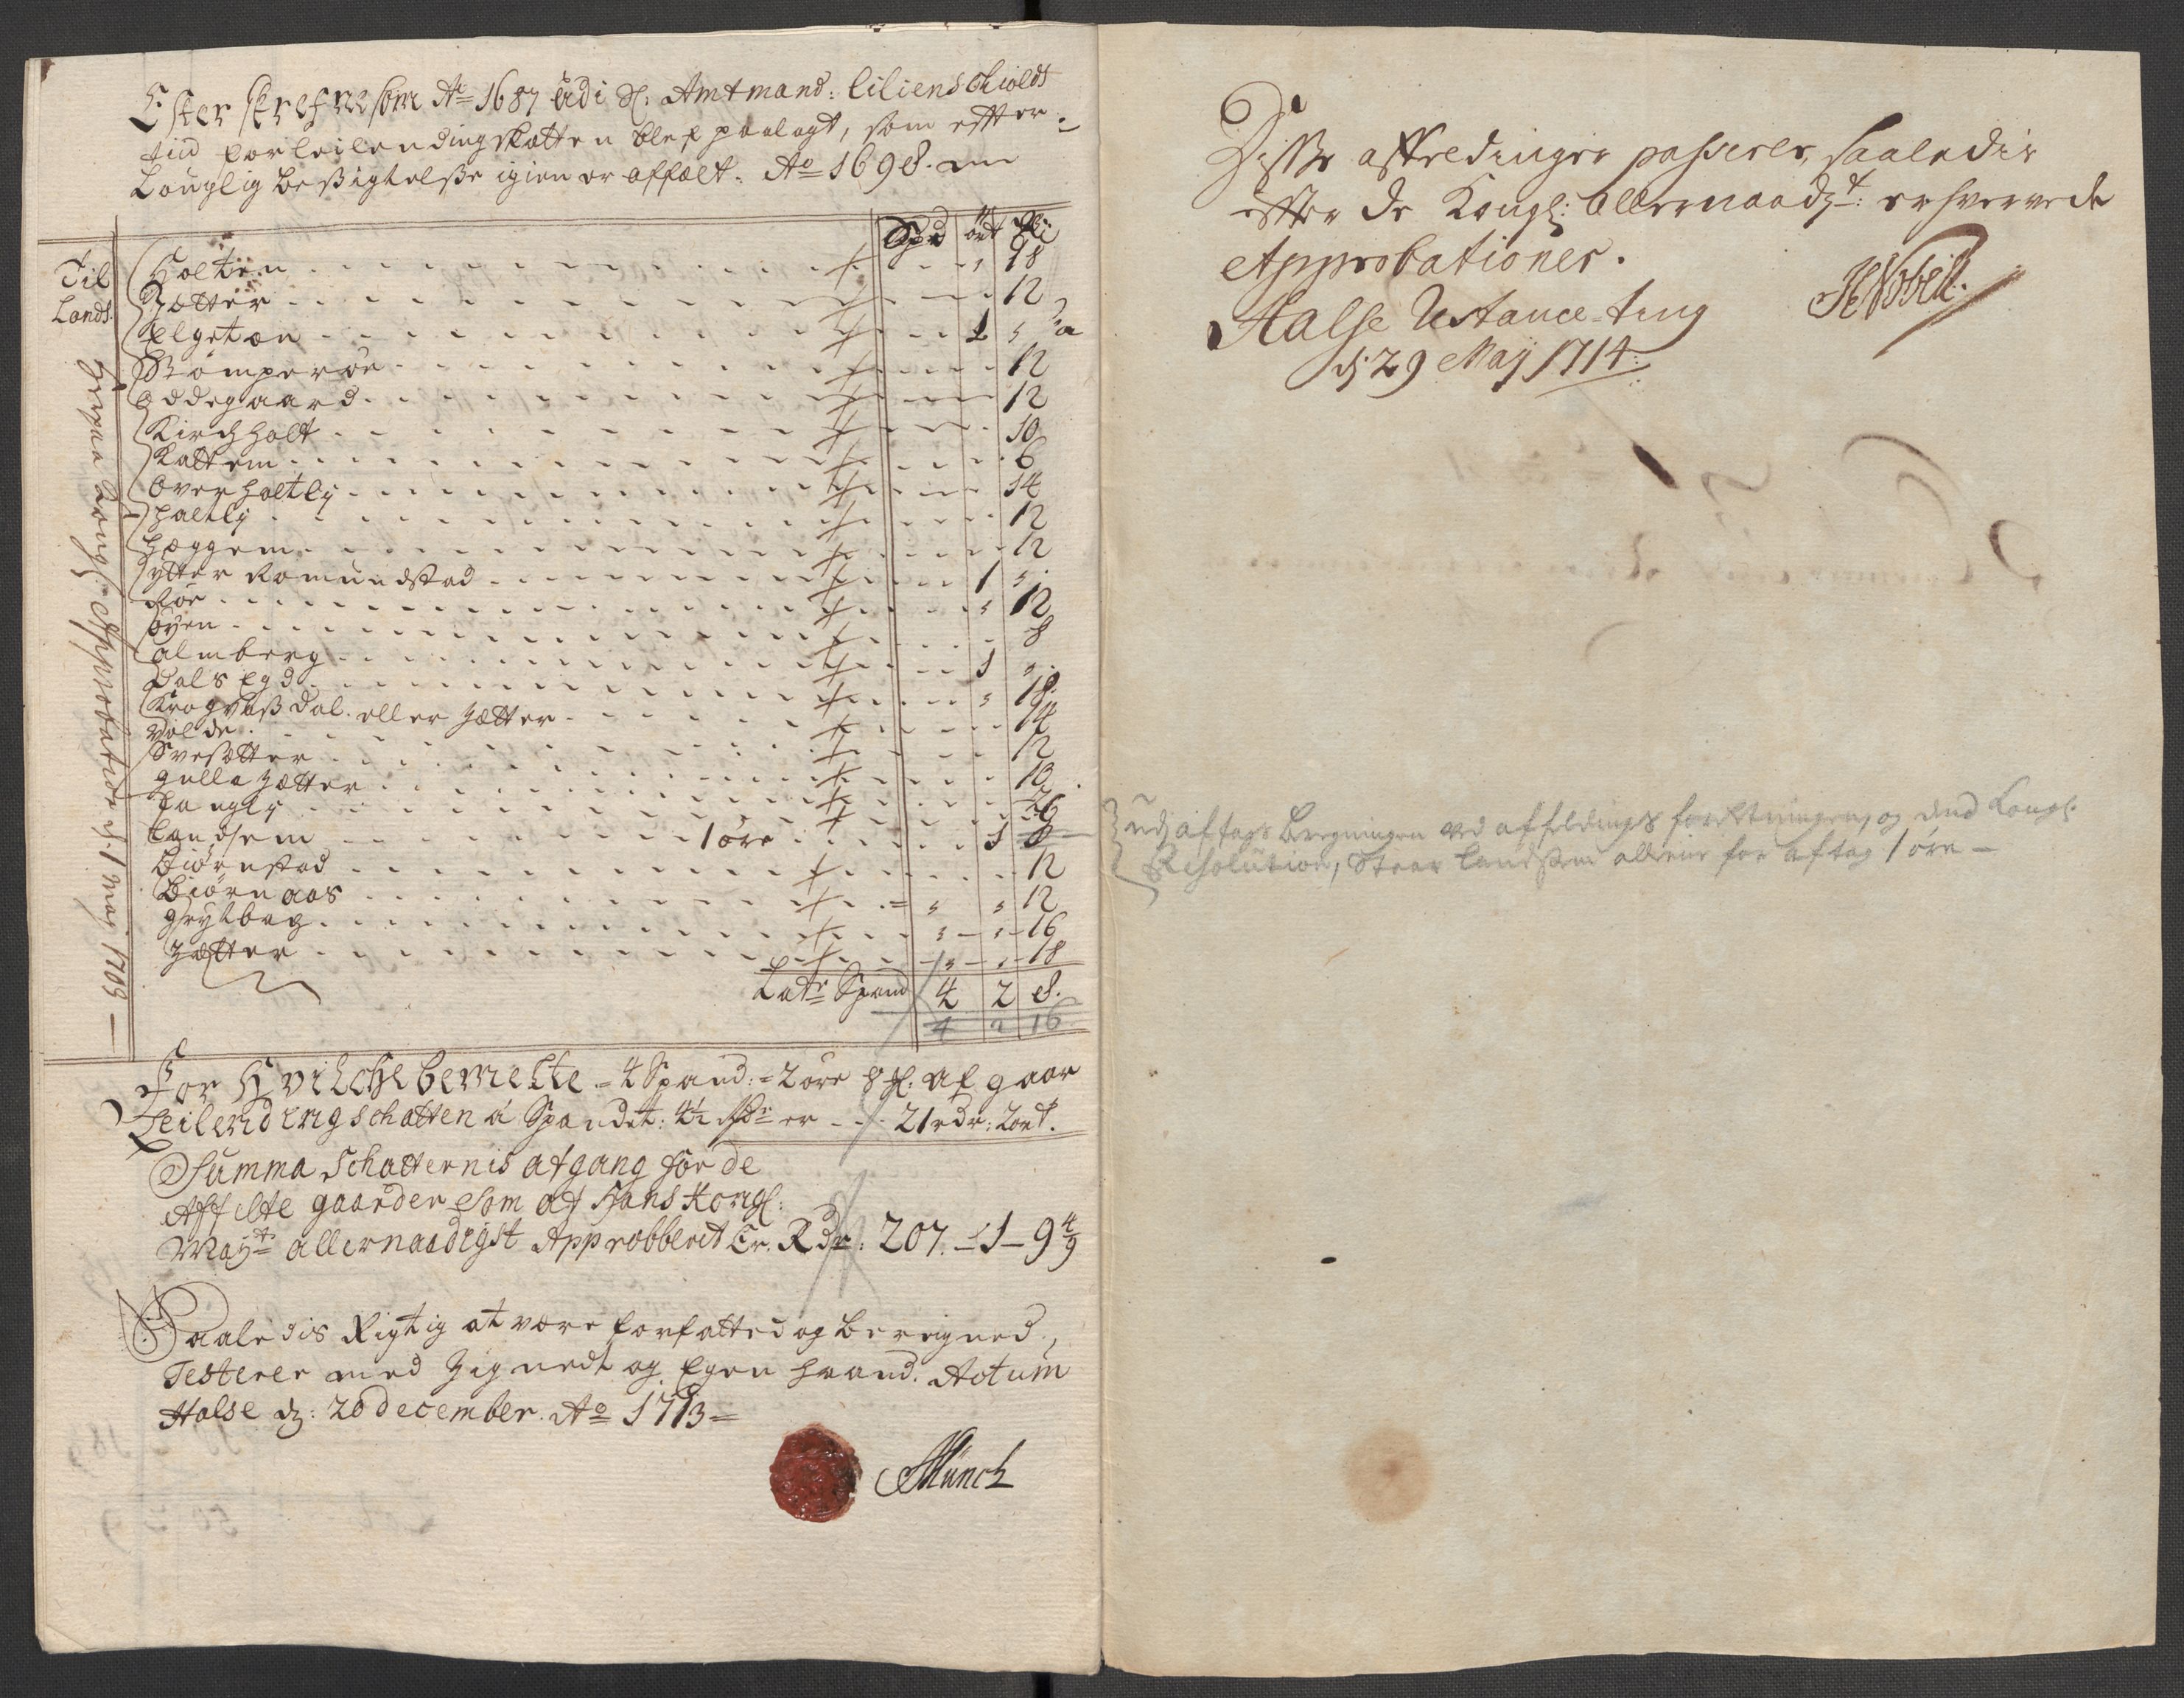 Efter skrefne som Ao 1687 udi Sl. Amtmand: Lilienschiolds
tiid for leilendingskatten blef paalagt, som efter
Louglig besigtelse igien er affelt. Ao 1698. nu
Spd ort
Til
Lands
Holten 18
Sætter 12
Elgeton 1
Strømperøe 12
Oddegaard 12
Kirchholt 10
Kattem 6
Overholtlij 14
Haltlij 12
Hæggem 12
ytter Romundstad 1
Roe 12
Øyen 8
Almberg 1
Dals Egd 18
Kragvaß Dal. eller Sætter 14
Volde 12
Svesætter 10
Gulla Sætter
Langlij 6
Landsem 1 øre 1 8
Biørnstad 12
Biørnaas 12
Grytbag 16
Sætter 18
Lat Spand 4 2 8.
4 2 16
Kongl: Approbation d. 1 Maj 1709
For Hvilche bemelte 4 Spand: 2 øre 8 Af gaar
Leilendingschatten á Spandet: 4½ Rdr er 21 rdr: 2 ort.
Summa Schatternis afgang for de
Affelte gaarder som af Hans Kongl:
Mayt allernaadigst Approbberit Er. Rdr: 207. – 1 – 9 4/9
Saaledis Rigtig at være forfatted og bereigned,
Testerer med Zignedt og Egen haand. Actum
Halse d: 20 december. Ao 1713
Münch
Disse afkredinger passerer, saaledis
efter de Kongl: Allernaadst: erhvervede
Approbationer.
Halse Ustance-ting
d: 29 Maj 1714:
udj aftags beregningen ved affeldings forretningen, og dend Kongl.
Resolution, staar Landsem alleene for aftag 1 øre –